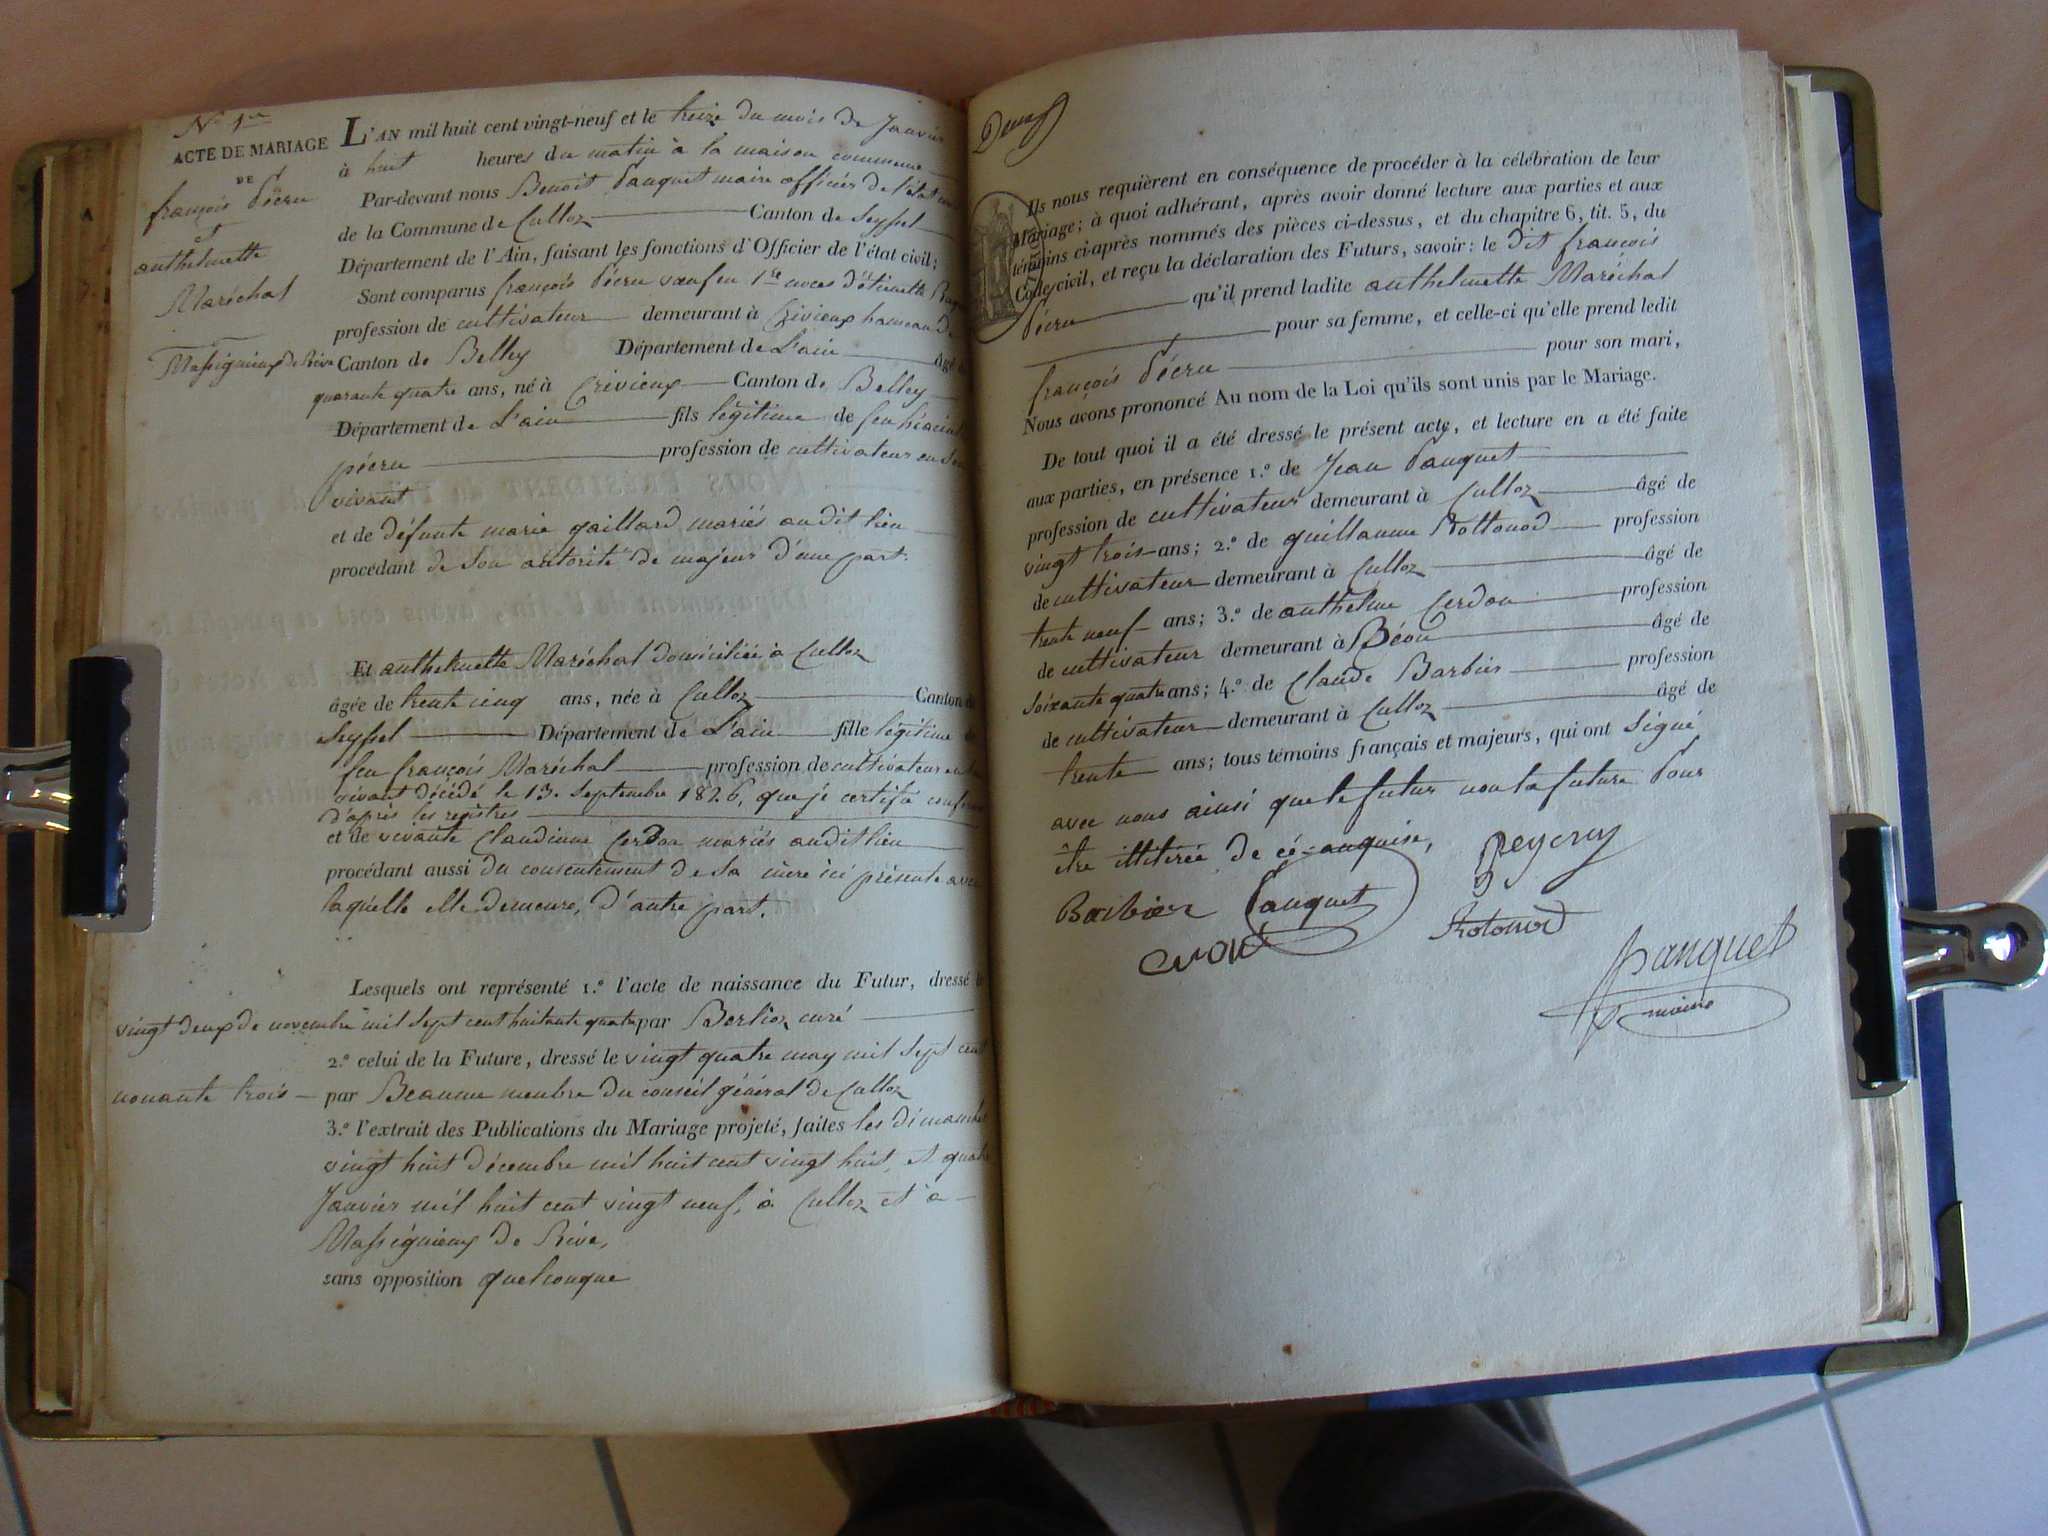 N.º 1er
ACTE DE MARIAGE
DE
françois Pécru
et
anthelmette
Maréchal
L'AN mil huit cent vingt-neuf et le treize du mois de Janvier
à huit heures du matin à la maison commune
Par-devant nous Benoit Pauquet maire officier de l'état
de la Commune de Culloz Canton de Seyssel
Département de l'Ain, faisant les fonctions d'Officier de l'état civil;
Sont comparus françois Pécru veuf en 1re noces d'étiennette
profession de cultivateur demeurant à Crivieux hameau de
Massignieux de Rive Canton de Belley Département de L'ain âgé
quarante quatre ans, né à Crivieux Canton de Belley
Département de L'ain fils légitime de feu
pécru profession de cultivateur en son
vivant
et de défunte marie gaillard mariés audit lieu
procédant de son autorité de majeur d'une part.
Et anthelmette Maréchal domiciliée à Culloz
âgée de trente cinq ans, née à Culloz Canton de
Seyssel Département de L'ain fille légitime de
feu françois Maréchal profession de cultivateur en son
vivant décédé le 13. Septembre 1826, que je certifie conforme
d'après les registres
et de vivante Claudinne Cerdon mariés audit lieu
procédant aussi du consentement de sa mère ici présente avec
laquelle elle demeure, d'autre part.
Lesquels ont représenté 1.º l'acte de naissance du Futur, dressé le
vingt deux de novembre mil sept cent huitante quatre par Berlioz curé
2.º celui de la Future, dressé le vingt quatre may mil sept cent
nonante trois par Beaume membre du conseil général de Culloz
3.º l'extrait des Publications du Mariage projeté, faites les dimanches
vingt huit décembre mil huit cent vingt huit, et quatre
Janvier mil huit cent vingt neuf, à Culloz et à
Massignieux de Rive,
sans opposition quelconque
Deux
Ils nous requièrent en conséquence de procéder à la célébration de leur
Mariage; à quoi adhérant, après avoir donné lecture aux parties et aux
témoins ci-après nommés des pièces ci-dessus, et du chapitre 6, tit. 5, du
Code civil, et reçu la déclaration des Futurs, savoir: le dit françois
Pécru qu'il prend ladite anthelmette Maréchal
pour sa femme, et celle-ci qu'elle prend ledit
françois Pécru pour son mari,
Nous avons prononcé Au nom de la Loi qu'ils sont unis par le Mariage.
De tout quoi il a été dressé le présent acte, et lecture en a été faite
aux parties, en présence 1.º de Jean Pauquet
profession de cultivateur demeurant à Culloz âgé de
vingt trois ans; 2.º de guillaume Rottonod profession
de cultivateur demeurant à Culloz âgé de
trente neuf ans; 3.º de anthelme Cerdon profession
de cultivateur demeurant à Béon âgé de
soixante quatre ans; 4.º de Claude Barbier profession
de cultivateur demeurant à Culloz âgé de
trente ans; tous témoins français et majeurs, qui ont signé
avec nous ainsi que le futur non la future pour
être illitirée de ce enquise,
Peycru
Barbier Pauquet
Rotonod
Pauquet
maire